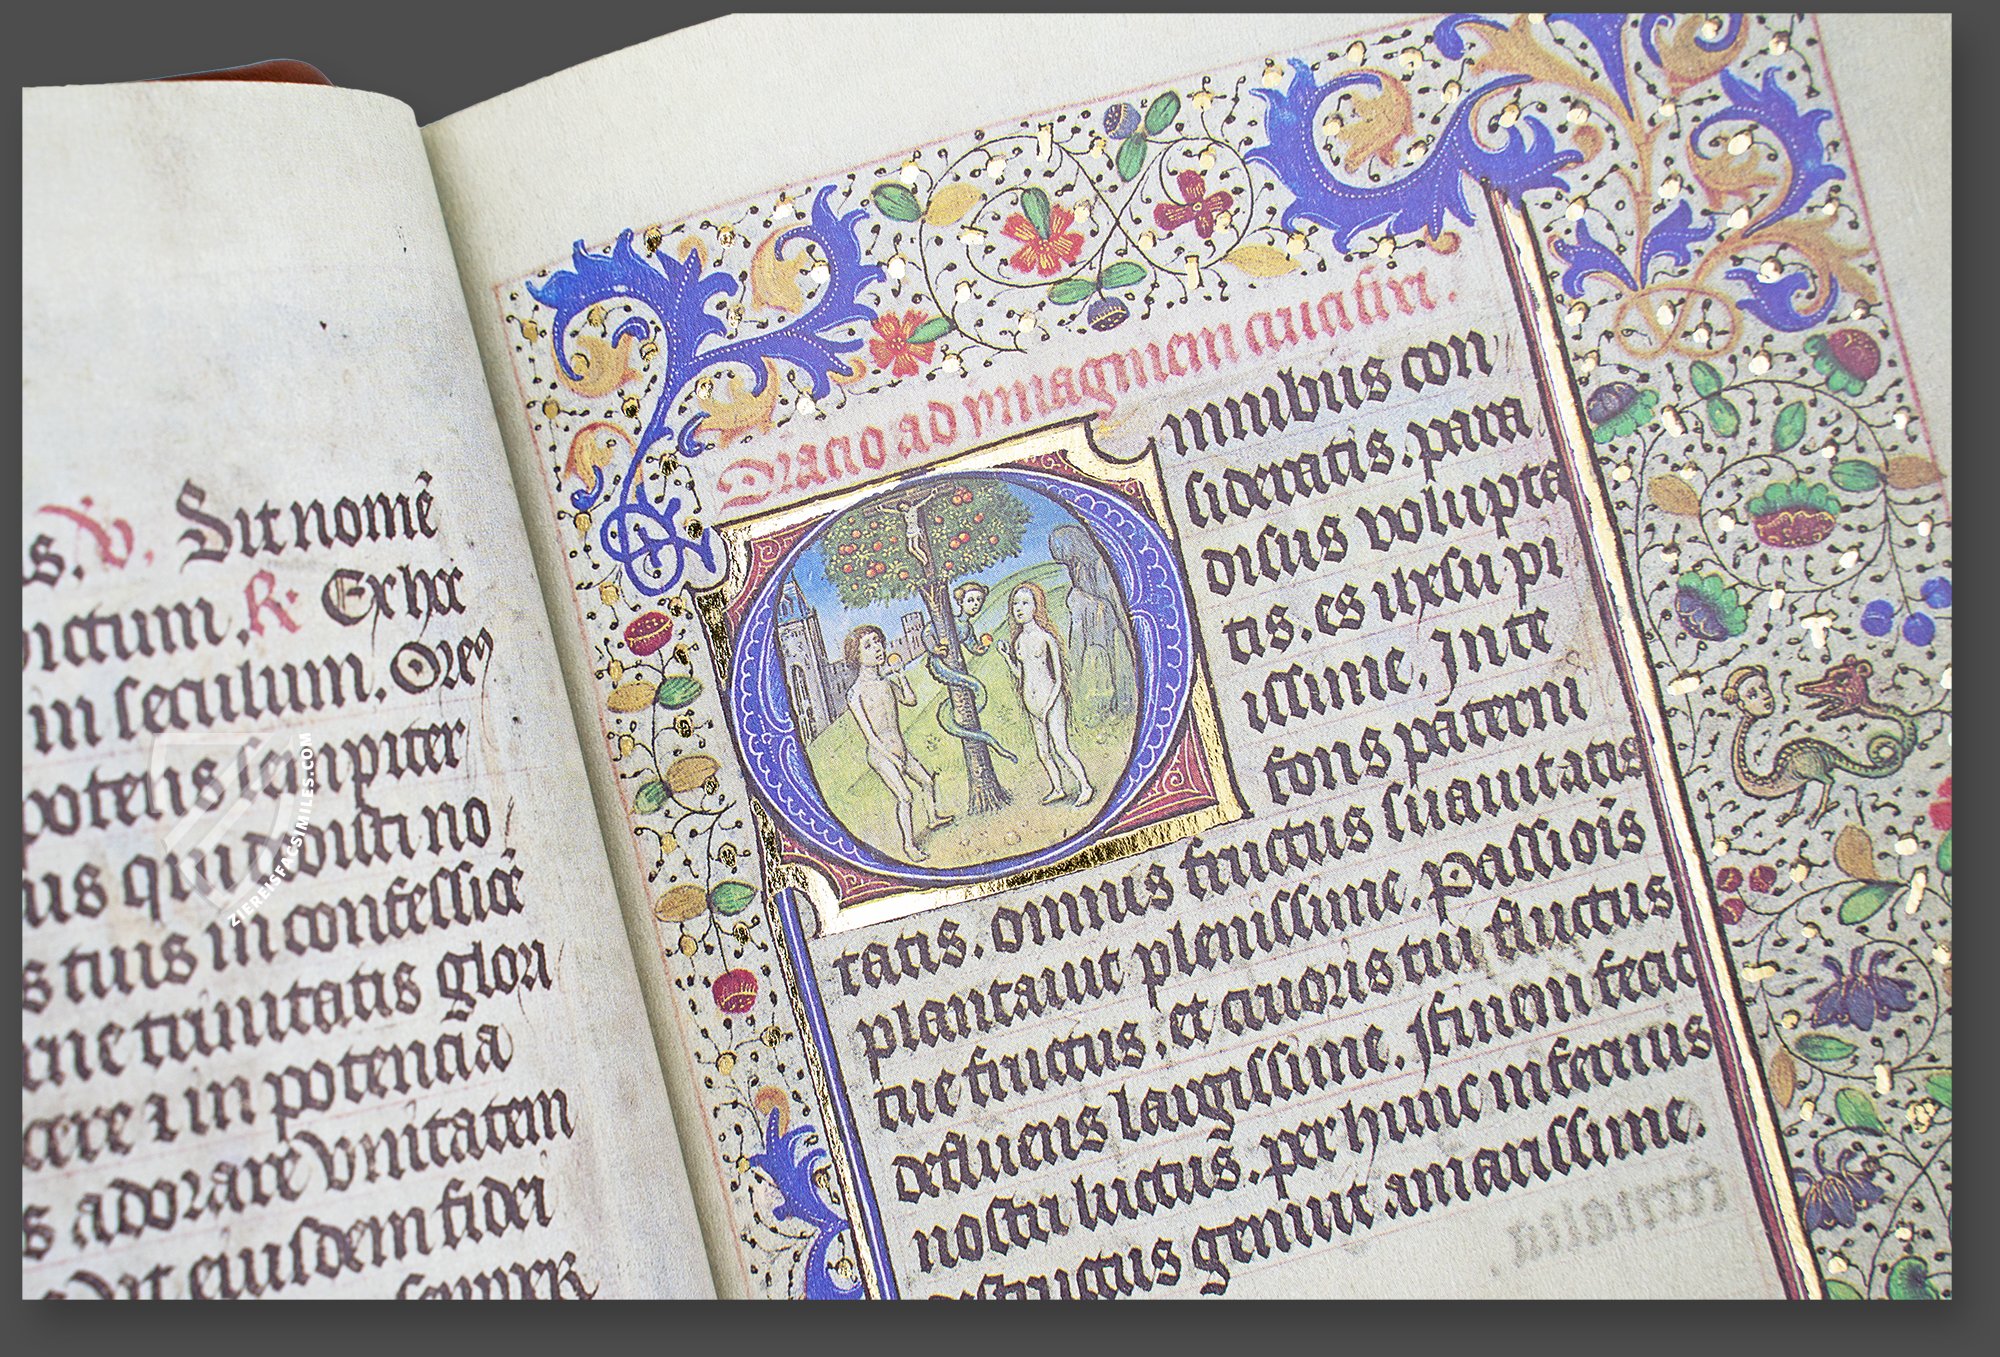 s. V. Sit nomē
dictum. R. Ex hoc
in seculum. Orem⁹
potens sempiter
us qui dedisti no
s tuis in confessiōe
rne trinitatis glori
cere ⁊ in potencia
s adorare vnitatem
ut eiusdem fidei
semper
Oracio ad ymaginem crucifixi.
mnibus con
sideratis. para
disus volupta
tis. es ihesu pi
issime. Inte
rons paterni
tatis. omnis fructus suauitatis
plantauit plenissime. passiois
tue fructus. et cruoris tui fluctus
defluens largissime. Hinem fecit
nostri luctus. per hunc inferius
destructus gemuit amarissime.
ZIEREISFACSIMILES.COM